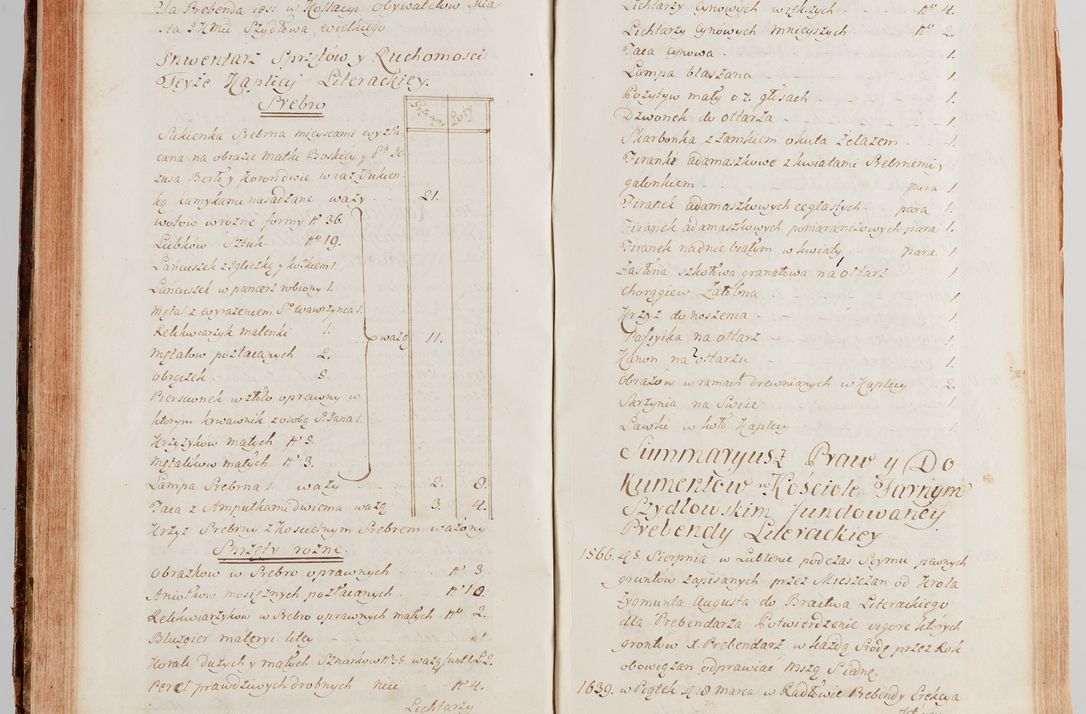 Ta Prebenda iest w Kollacyi Obywatelow Mia
sta JKMci Szydłowa wielkiego.
Inwentarz Sprzętów y Ruchomosci
Teyże Kaplicy Literackiey.
Srebro
Grzywny Łoty
Sukienka Srebrna mieyscami wyzła
cana na obrazie Matki Boskiey y Pa Je
zusa Berło y Koron dwie wraz Sukien
ką kamykami nasadzane waży 21.
wotow w rozne formy No 36.
Lubkow Sztuk No 19.
Łancuszek z Igliczką y kolkiem 1.
Łancuszek w pancerz robiony 1.
Mętal z wyrażeniem So Wawrzynca 1.
Relikwiarzyk malenki 1. ważą 11.
Mętalow pozłacanych 2.
Obrączek 8.
Piersionek w złoto oprawny w
ktorym krwawnik z osobą S. Jana 1.
Krzyżykow małych No 3.
Mętalikow małych No 3.
Lampa Srebrna 1. waży 2. 8.
Taca z Ampułkami dwiema ważą 3. 4.
Krzyż Srebrny z Koscielnym Srebrem ważony
Sprzęty rożne.
Obrazkow w Srebro oprawnych No 3
Aniołkow mosiężnych pozłacanych. No 10.
Relikwiarzykow w Srebro oprawnych małych No 2.
Bluzgier materyi litey 1
Korale dużych y małych Sznurkow No 36. ważą funt. 1. Ł 2.
Pereł prawdziwych drobnych nici No 4.
Lichtarzy
Lichtarzy Cynowych większych No 4.
Lichtarzy Cynowych mnieyszych No 2.
Taca Cynowa 1.
Lampa blaszana 1.
Pozytyw mały o 2. głosach 1.
Dzwonek do ołtarza 1.
Skarbonka z zamkiem okuta żelazem 1.
Firanki adamaszkowe z kwiatami Srebrnemi y
galonkiem para 1.
Firanek adamaszkowych ceglastych para 1.
Firanek adamaszkowych pomaranczowych para 1.
Firanek na dnie białym w kwiaty para 1.
Zasłona szkotowa granatowa na ołtarz 1.
Chorągiew żałobna 1.
Krzyż do noszenia 1.
Passyika na ołtarz 1.
Kanon na ołtarzu 1.
Obrazow w ramach drewnianych w Kaplicy 2.
Skrzynia na Swiece 1.
Ławki w koło Kaplicy 1.
Summaryusz Praw y Do
kumentow w Kościele Farnym
Szydłowskim fundowaney
Prebendy Literackiey
1566. d 8 Sierpnia w Lublinie podczas Seymu pewnych
gruntow zapisanych przez Mieszczan od Krola
Zygmunta Augusta do Bractwa Literackiego
dla Prebendarza Potwierdzenie vigore ktorych
grontow X. Prebendarz w każdą Srodę przez Rok
obowiązan odprawiać Mszą S.
1639. w Piątek d 18 Marca w Radłowie Prebendy Erekcya